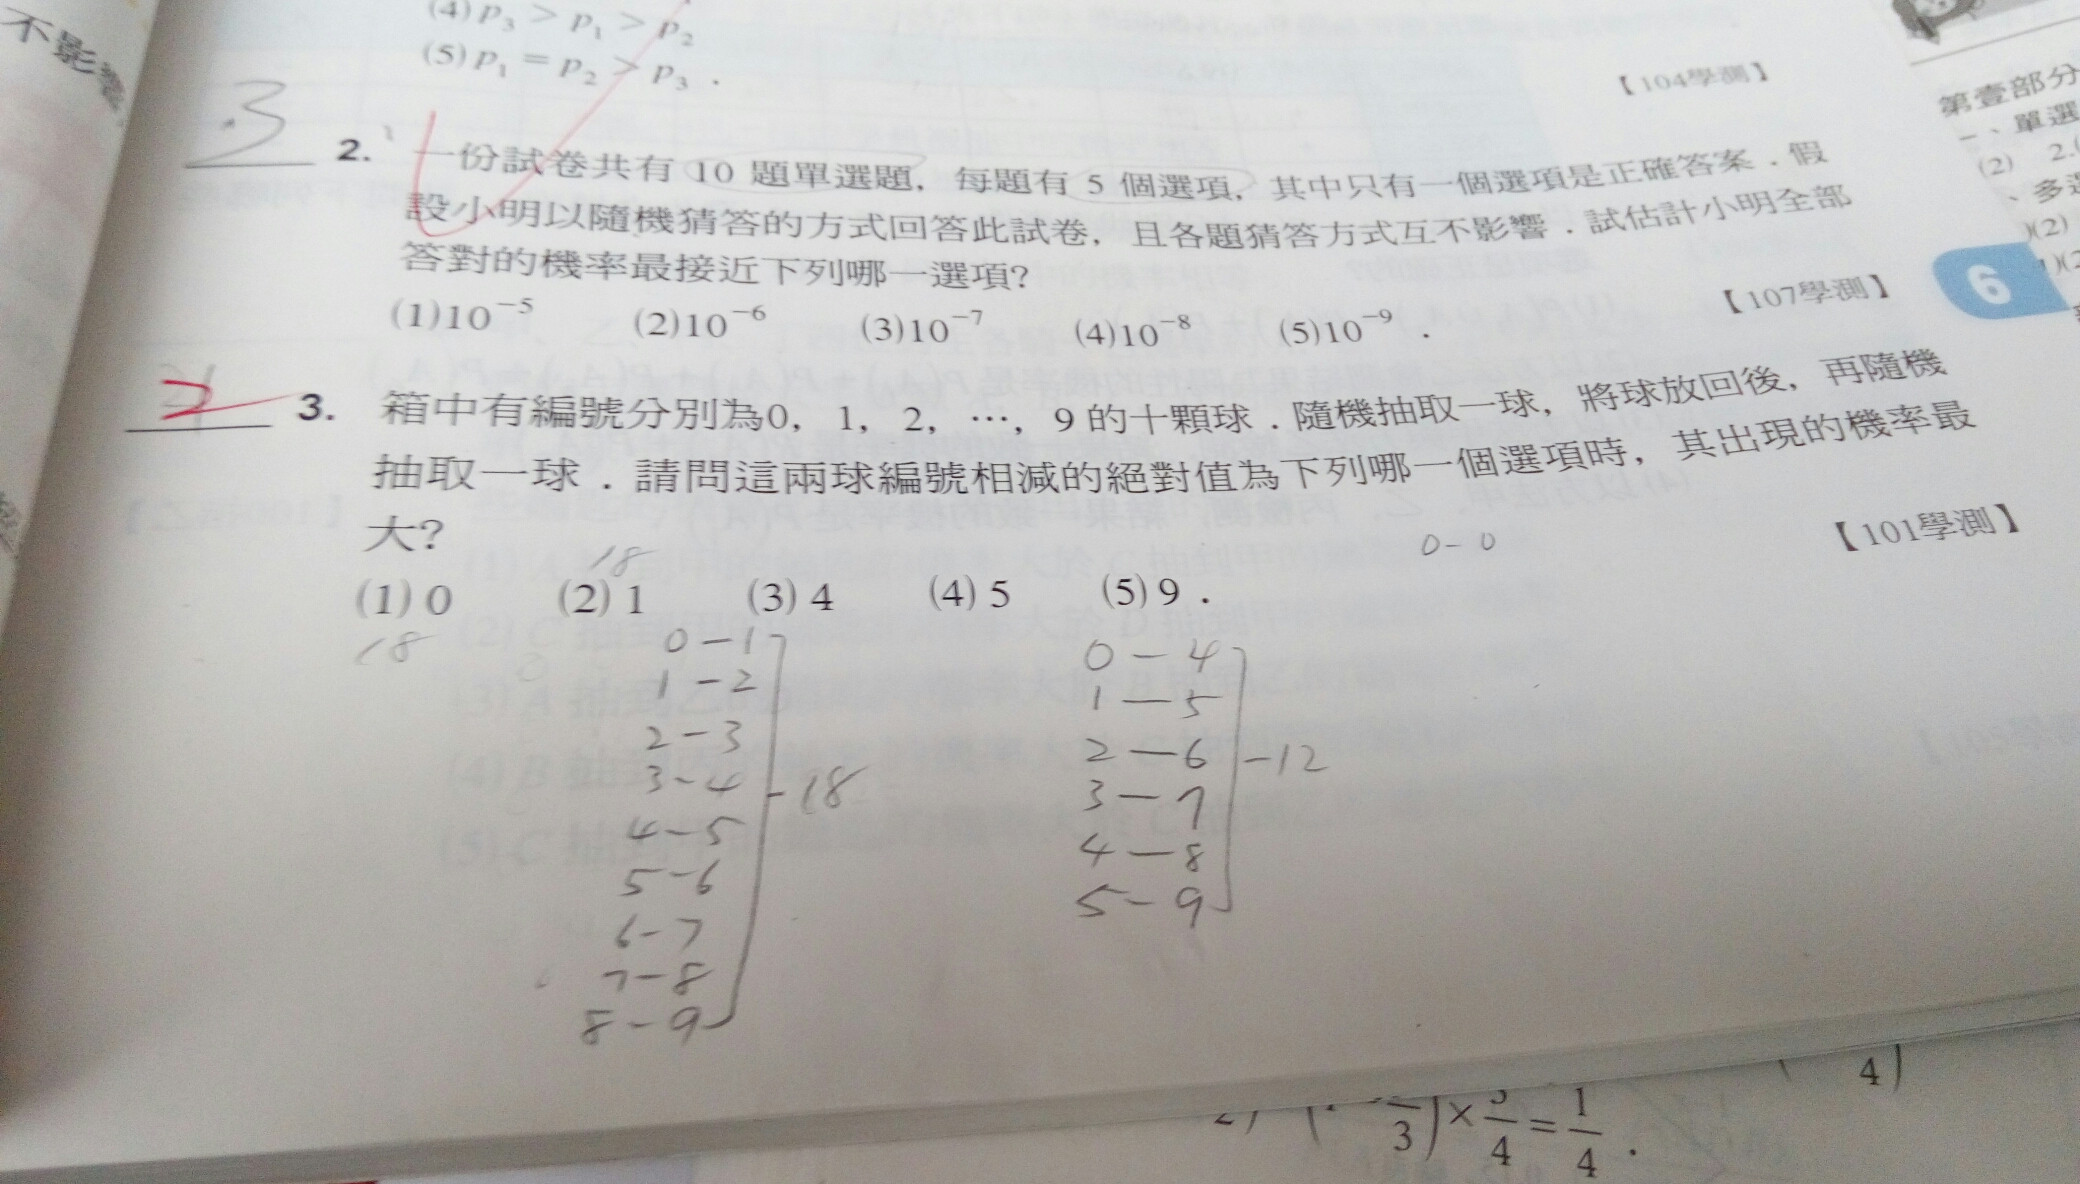 不影響
(4) p₃ > p₁ > p₂
(5) p₁ = p₂ > p₃ .
【104學測】
3
2. 一份試卷共有 10 題單選題，每題有 5 個選項，其中只有一個選項是正確答案．假
設小明以隨機猜答的方式回答此試卷，且各題猜答方式互不影響．試估計小明全部
答對的機率最接近下列哪一選項?
【107學測】
(1)10⁻⁵ (2)10⁻⁶ (3)10⁻⁷ (4)10⁻⁸ (5)10⁻⁹ .
2
3. 箱中有編號分別為0，1，2，…，9 的十顆球．隨機抽取一球，將球放回後，再隨機
抽取一球．請問這兩球編號相減的絕對值為下列哪一個選項時，其出現的機率最
大?
【101學測】
0-0
18
(1) 0 (2) 1 (3) 4 (4) 5 (5) 9 .
18
0-1
1-2
2-3
3-4
4-5
5-6
6-7
7-8
8-9
-18
0-4
1-5
2-6
3-7
4-8
5-9
-12
第壹部分
一、單選
(2) 2.
、多選
)(2)
6
3)×3/4=1/4 .
4)